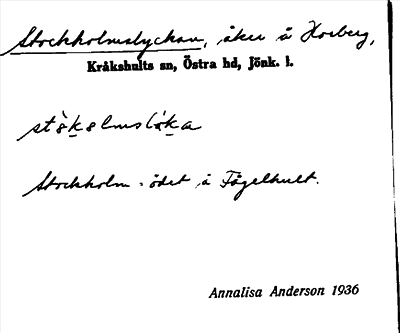 Stockholmslyckan, åker å Horberg,
Kråkshults sn, Östra hd, Jönk. l.
Stockholm-ödet å Fågelhult.
Annalisa Anderson 1936